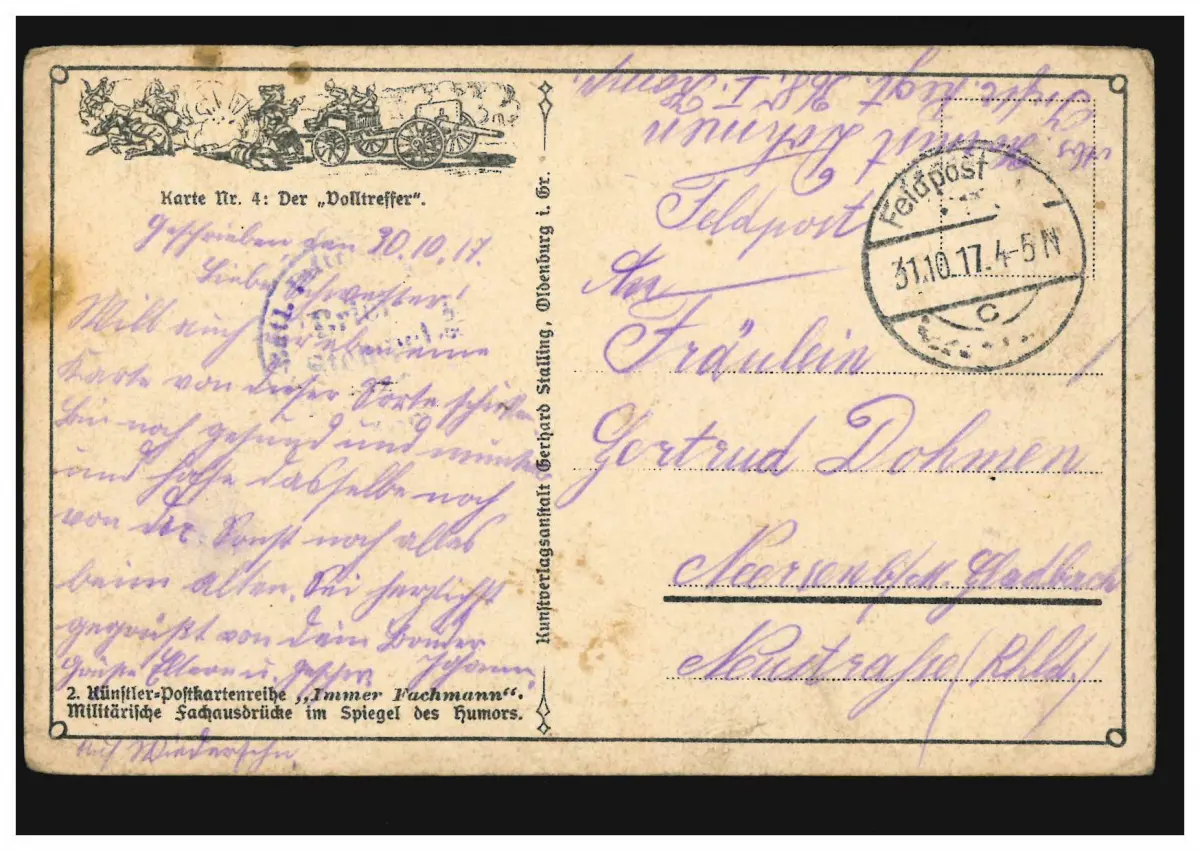 Karte Nr. 4: Der „Volltreffer“.
Geschrieben den 30.10.17.
Liebe Schwester!
Will auch eine
Karte von dieser Sorte schicken
Bin noch gesund und munter
und hoffe dasselbe noch
von dir. Sonst noch alles
beim alten. Sei herzlichst
gegrüßt von dein Bruder
Grüße Eltern u. Johann
2. Künstler-Postkartenreihe „Immer Fachmann“.
Militärische Fachausdrücke im Spiegel des Humors.
Auf Wiedersehn.
Kunstverlagsanstalt Gerhard Stalling, Oldenburg i. Gr.
Dohmen
Feldpost
An
Fräulein
Gertrud Dohmen
Neersen Gladbach
Neustraße (Rhld.)
Feldpost
31.10.17. 4-5 N
c